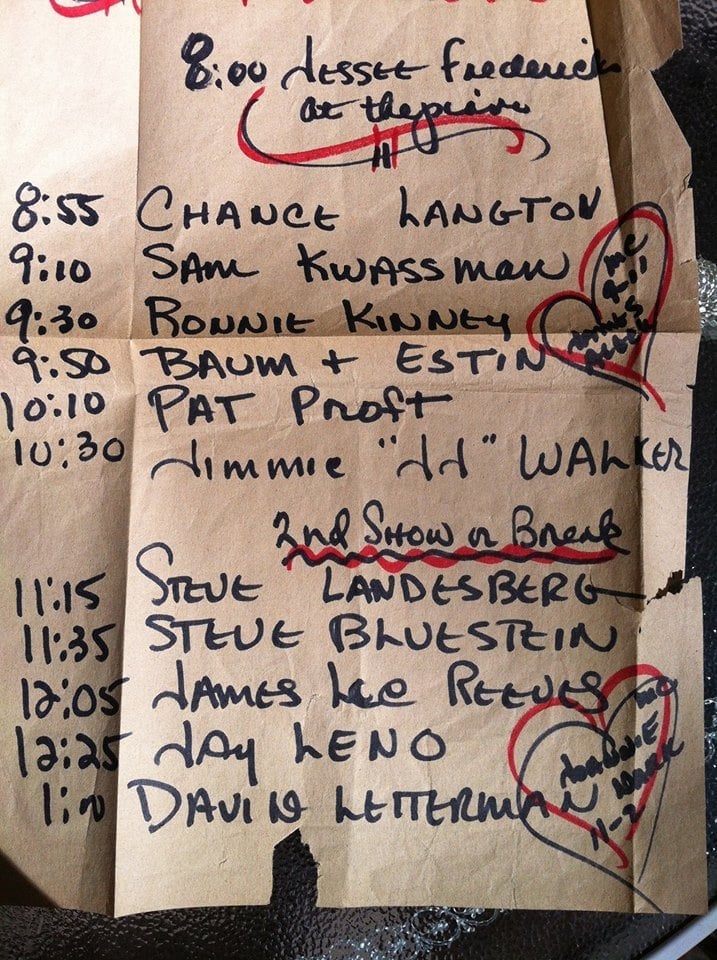 8:00 Jessee Frederick
at the piano
8:55 CHANCE LANGTON
9:10 SAM KWASSMAN
9:30 RONNIE KINNEY
9:50 BAUM + ESTIN
10:10 PAT PROFT
10:30 Jimmie "JJ" WALKER
MC
9-11
JAMES
2nd Show or Break
11:15 STEVE LANDESBERG
11:35 STEVE BLUESTEIN
12:05 JAMES Lee REEVES
12:25 JAY LENO
DAVID LETTERMAN
MC
JOHNNIE
DARK
11-2